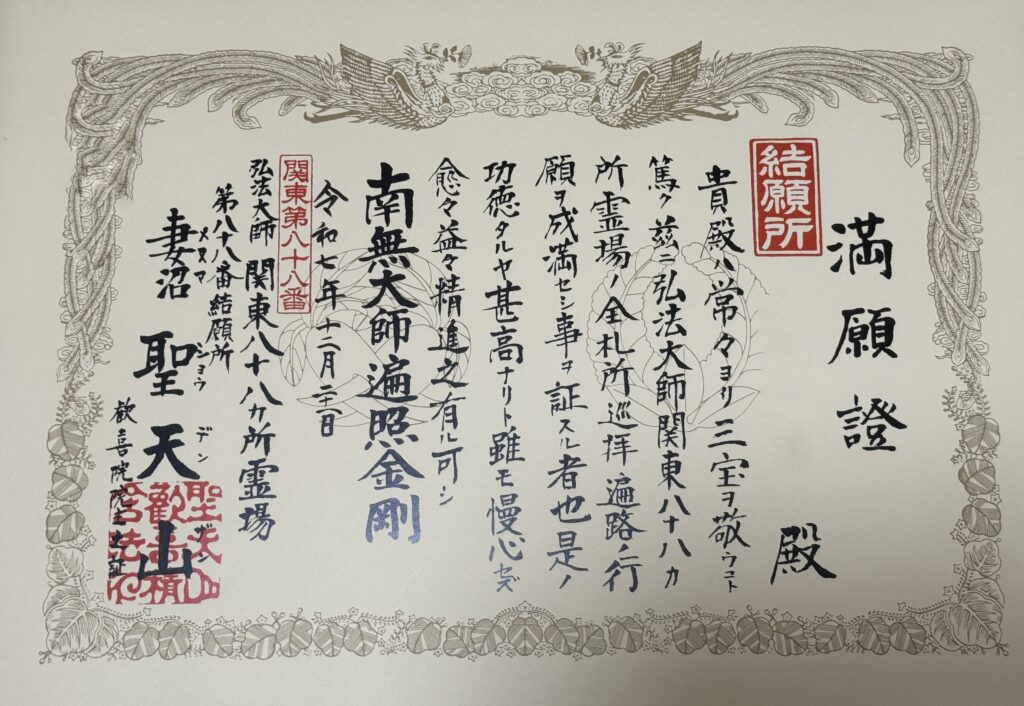 満願證
結願所
殿
貴殿ハ常々ヨリ三宝ヲ敬ウコト
篤ク茲ニ弘法大師関東八十八カ
所霊場ノ全札所巡拝遍路ノ行
願ヲ成満セシ事ヲ証スル者也是ノ
功徳タルヤ甚高ナリト雖モ慢心セズ
愈々益々精進之有ル可シ
南無大師遍照金剛
令和七年十二月二十一日
関東第八十八番
弘法大師 関東八十八カ所霊場
第八十八番結願所
妻沼 聖天山
メヌマ ショウデンザン
歓喜院院主之証